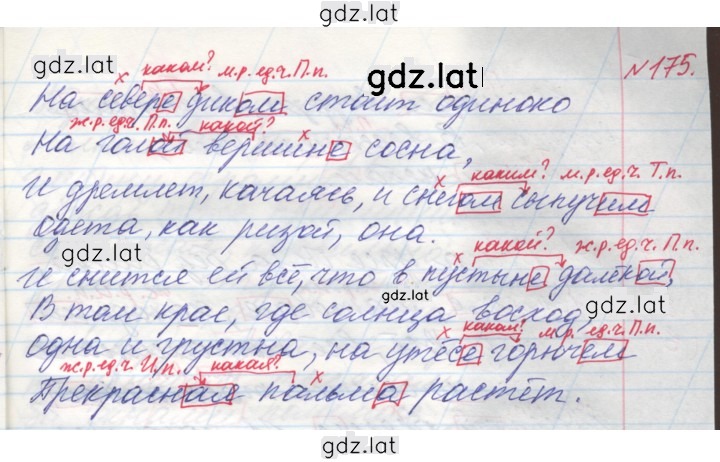 gdz.lat
№175.
каком? м.р.ед.ч.П.п.
gdz.lat
На севере диком стоит одиноко
ж.р.ед.ч.П.п. какой?
На голой вершине сосна,
gdz.lat
каким? м.р.ед.ч. Т.п.
И дремлет, качаясь, и снегом сыпучим
gdz.lat
Одета, как ризой, она.
gdz.lat
какой? ж.р.ед.ч. П.п.
И снится ей всё, что в пустыне далёкой,
gdz.lat
gdz.lat
В том крае, где солнца восход,
каком? м.р. ед.ч. П.п.
одна и грустна, на утёсе горючем
ж.р.ед.ч. И.п. какая?
Прекрасная пальма растёт.
gdz.lat
gdz.lat